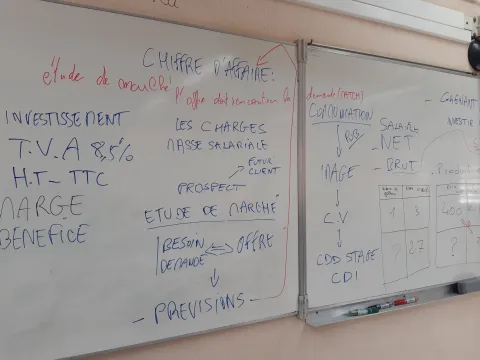 CHIFFRE D'AFFAIRE:
étude de marché
l'offre doit rencontrer la
demande (MATCH)
INVESTISSEMENT
T.V.A 8,5%
H.T - TTC
MARGE
BENEFICE
LES CHARGES
MASSE SALARIALE
FUTUR
CLIENT
PROSPECT
ETUDE DE MARCHE
BESOIN
DEMANDE
OFFRE
- PREVISIONS -
COMMUNICATION
PUB
IMAGE
C.V
CDD STAGE
CDI
- GAGNANT
INVESTIR
- SALAIRE
- NET
- BRUT
1 3
? 27
400
?